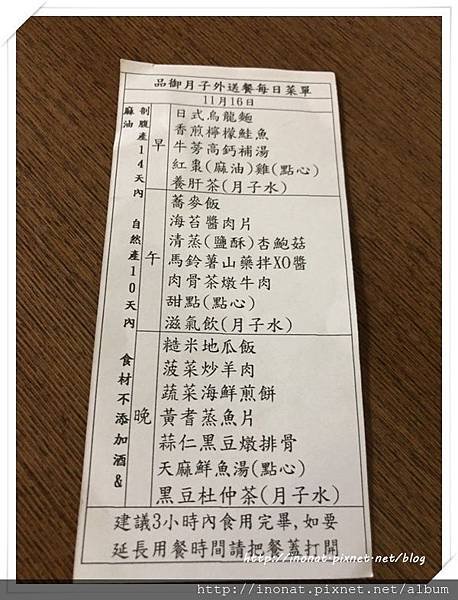 品御月子外送餐每日菜單
11月16日
剖腹產14天內 自然產10天內 食材不添加酒&
麻油
早
日式烏龍麵
香煎檸檬鮭魚
牛蒡高鈣補湯
紅棗(麻油)雞(點心)
養肝茶(月子水)
午
蕎麥飯
海苔醬肉片
清蒸(鹽酥)杏鮑菇
馬鈴薯山藥拌XO醬
肉骨茶燉牛肉
甜點(點心)
滋氣飲(月子水)
晚
糙米地瓜飯
菠菜炒羊肉
蔬菜海鮮煎餅
黃耆蒸魚片
蒜仁黑豆燉排骨
天麻鮮魚湯(點心)
黑豆杜仲茶(月子水)
建議3小時內食用完畢,如要
延長用餐時間請把餐蓋打開
http://inonat.pixnet.net/blog
http://inonat.pixnet.net/album